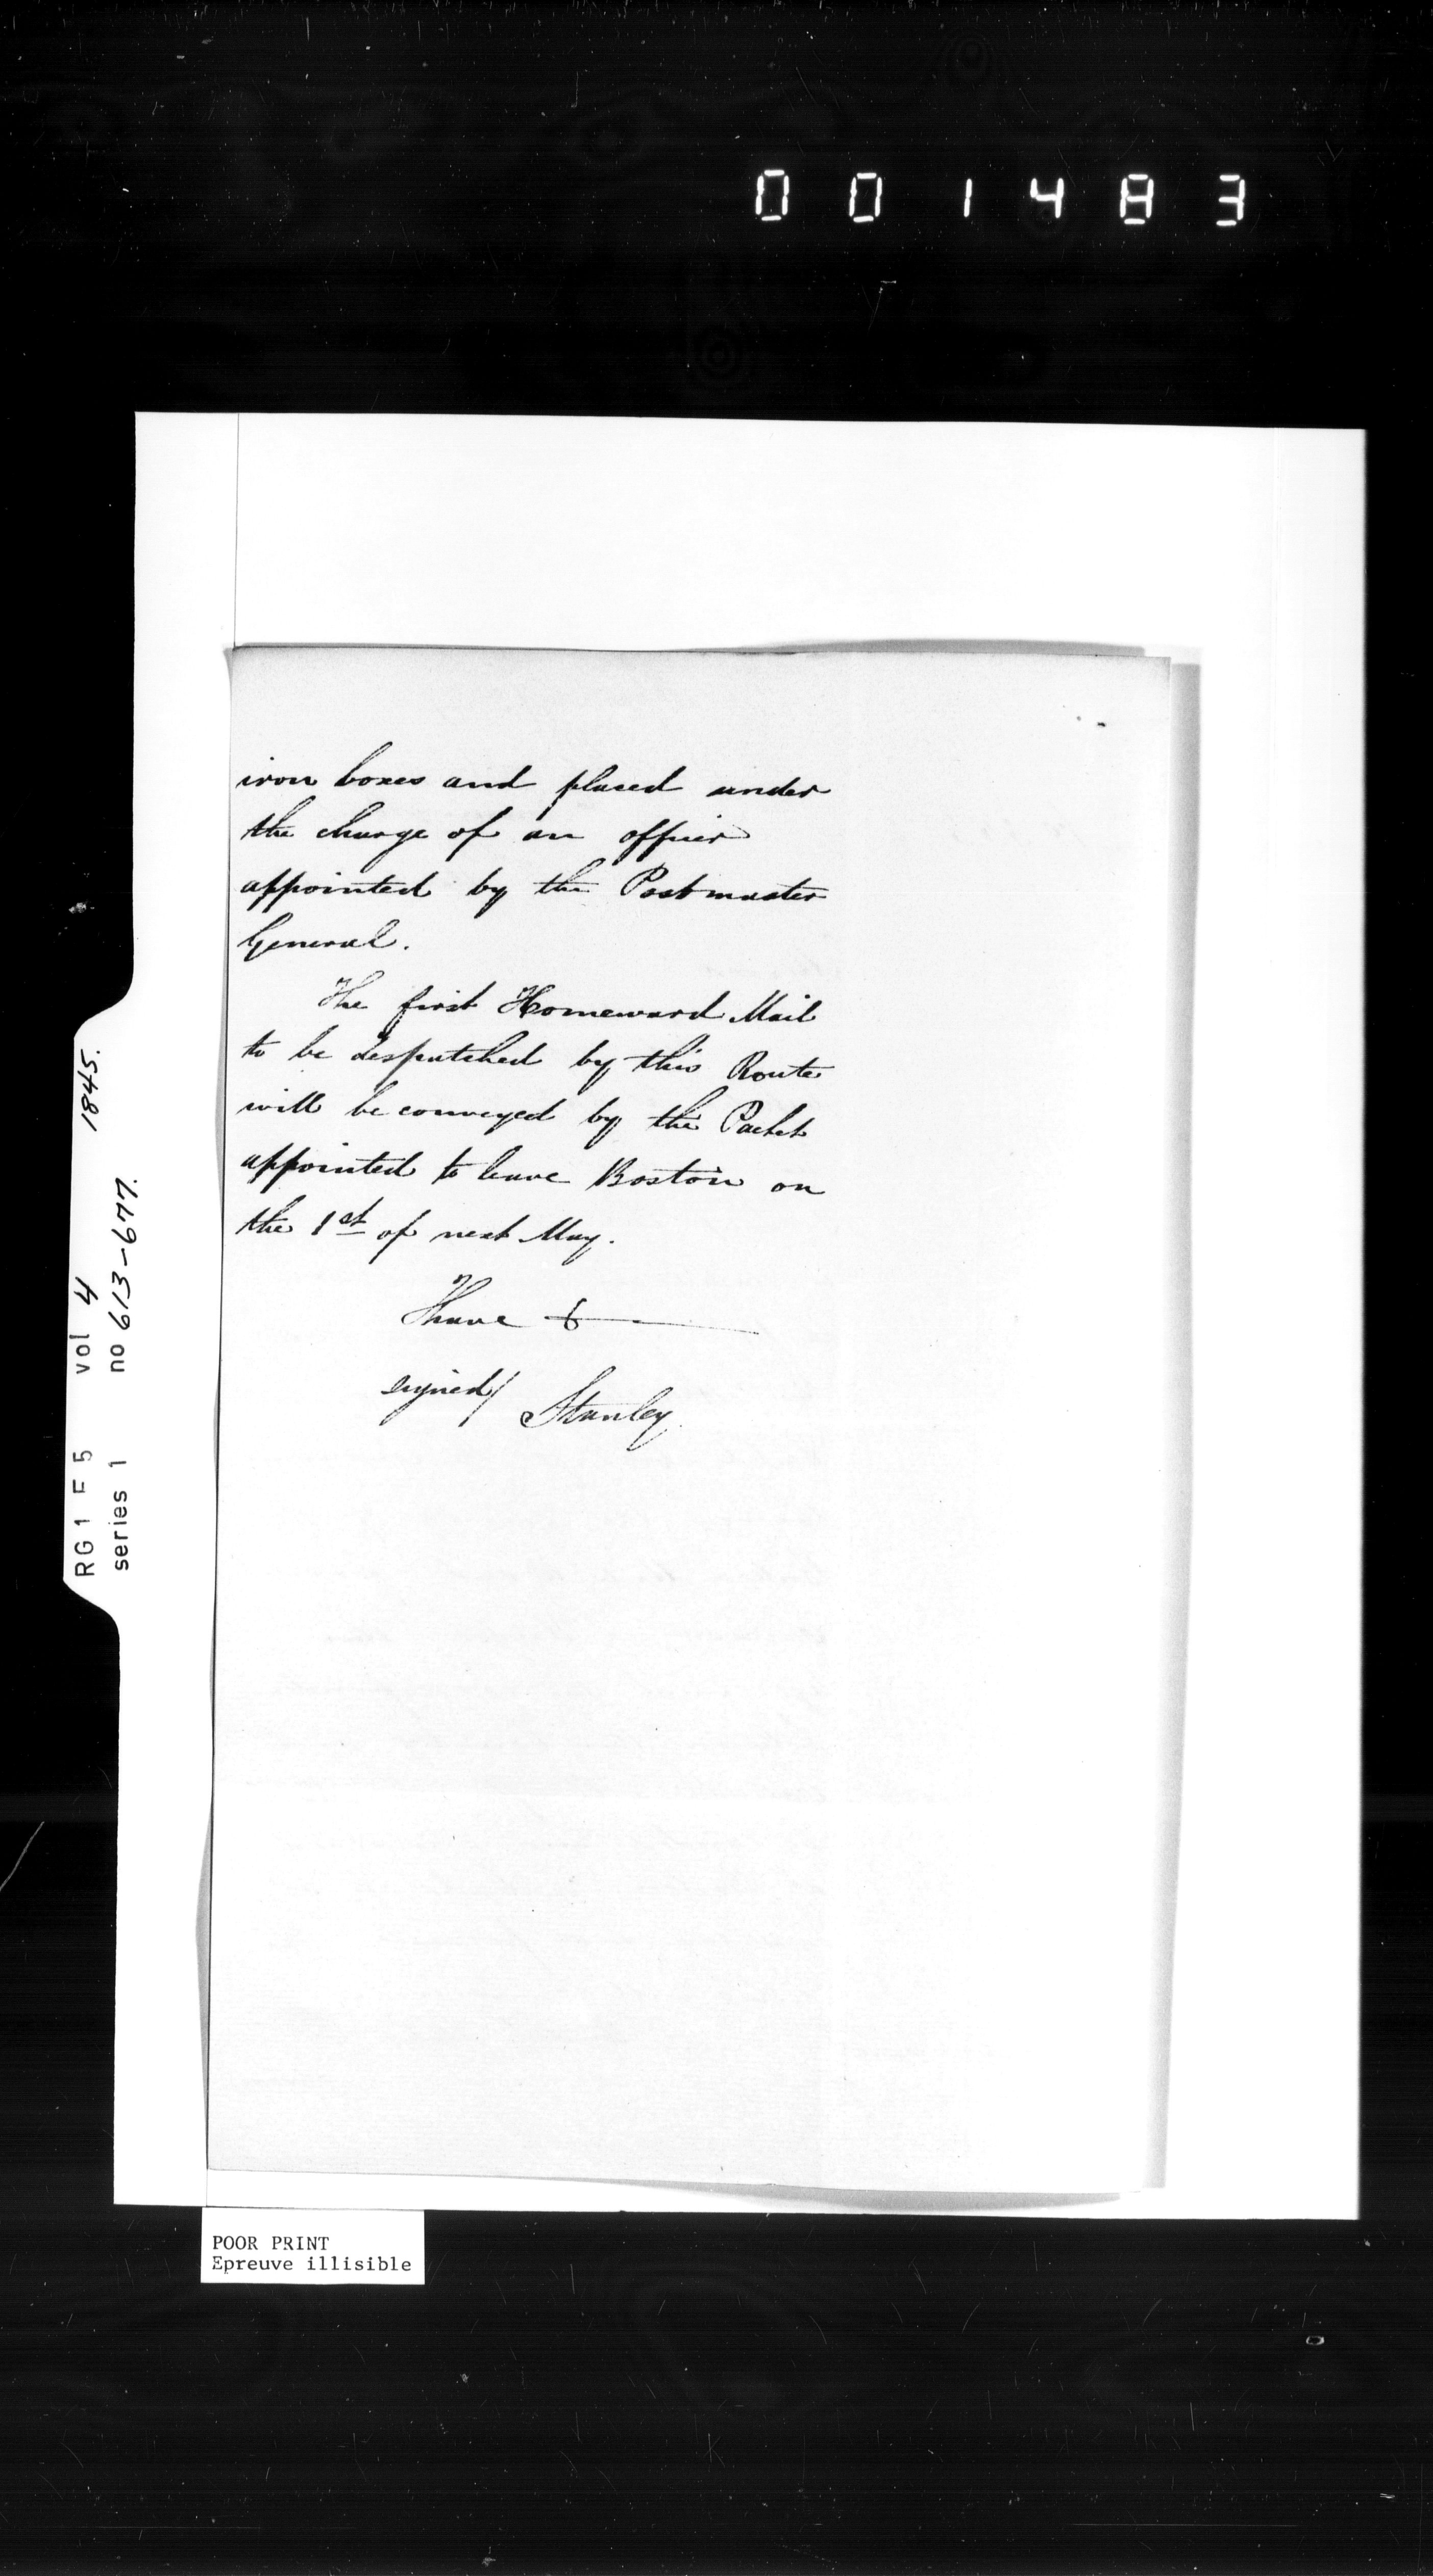 001483
iron boxes and placed under
the charge of an officer
appointed by the Postmaster
General.
The first Homeward Mail
to be despatched by this Route
will be conveyed by the Packet
appointed to leave Boston on
the 1st of next May.
I have &
signed/ Stanley
RG1 E5 vol 4 1845.
series 1 no 613-677.
POOR PRINT
Epreuve illisible